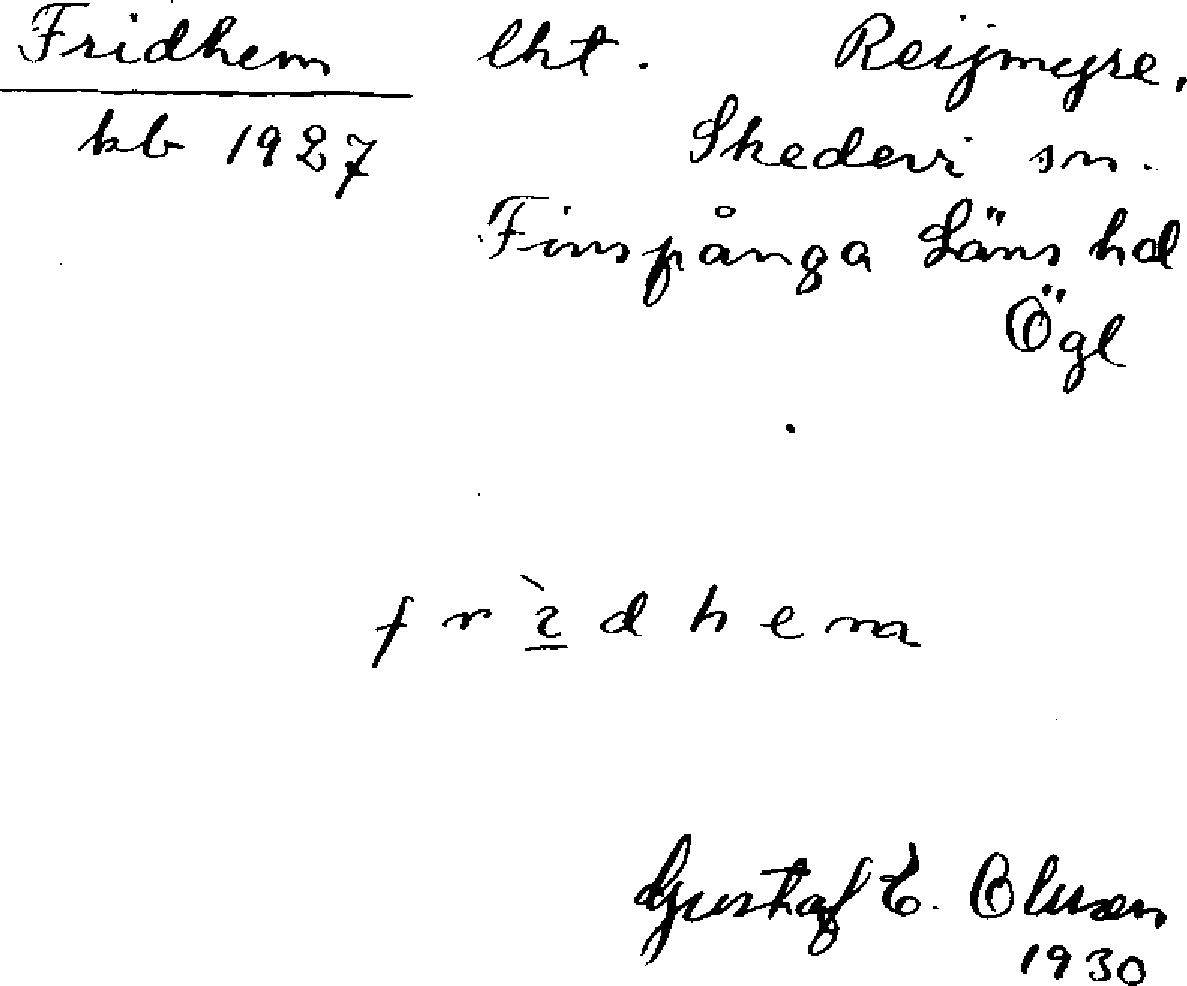 Fridhem lht. Reijmyre,
kb 1927 Skedevi sn.
Finspånga Läns hd
Ögl
f r ì d h e m
Gustaf E. Olsson
1930